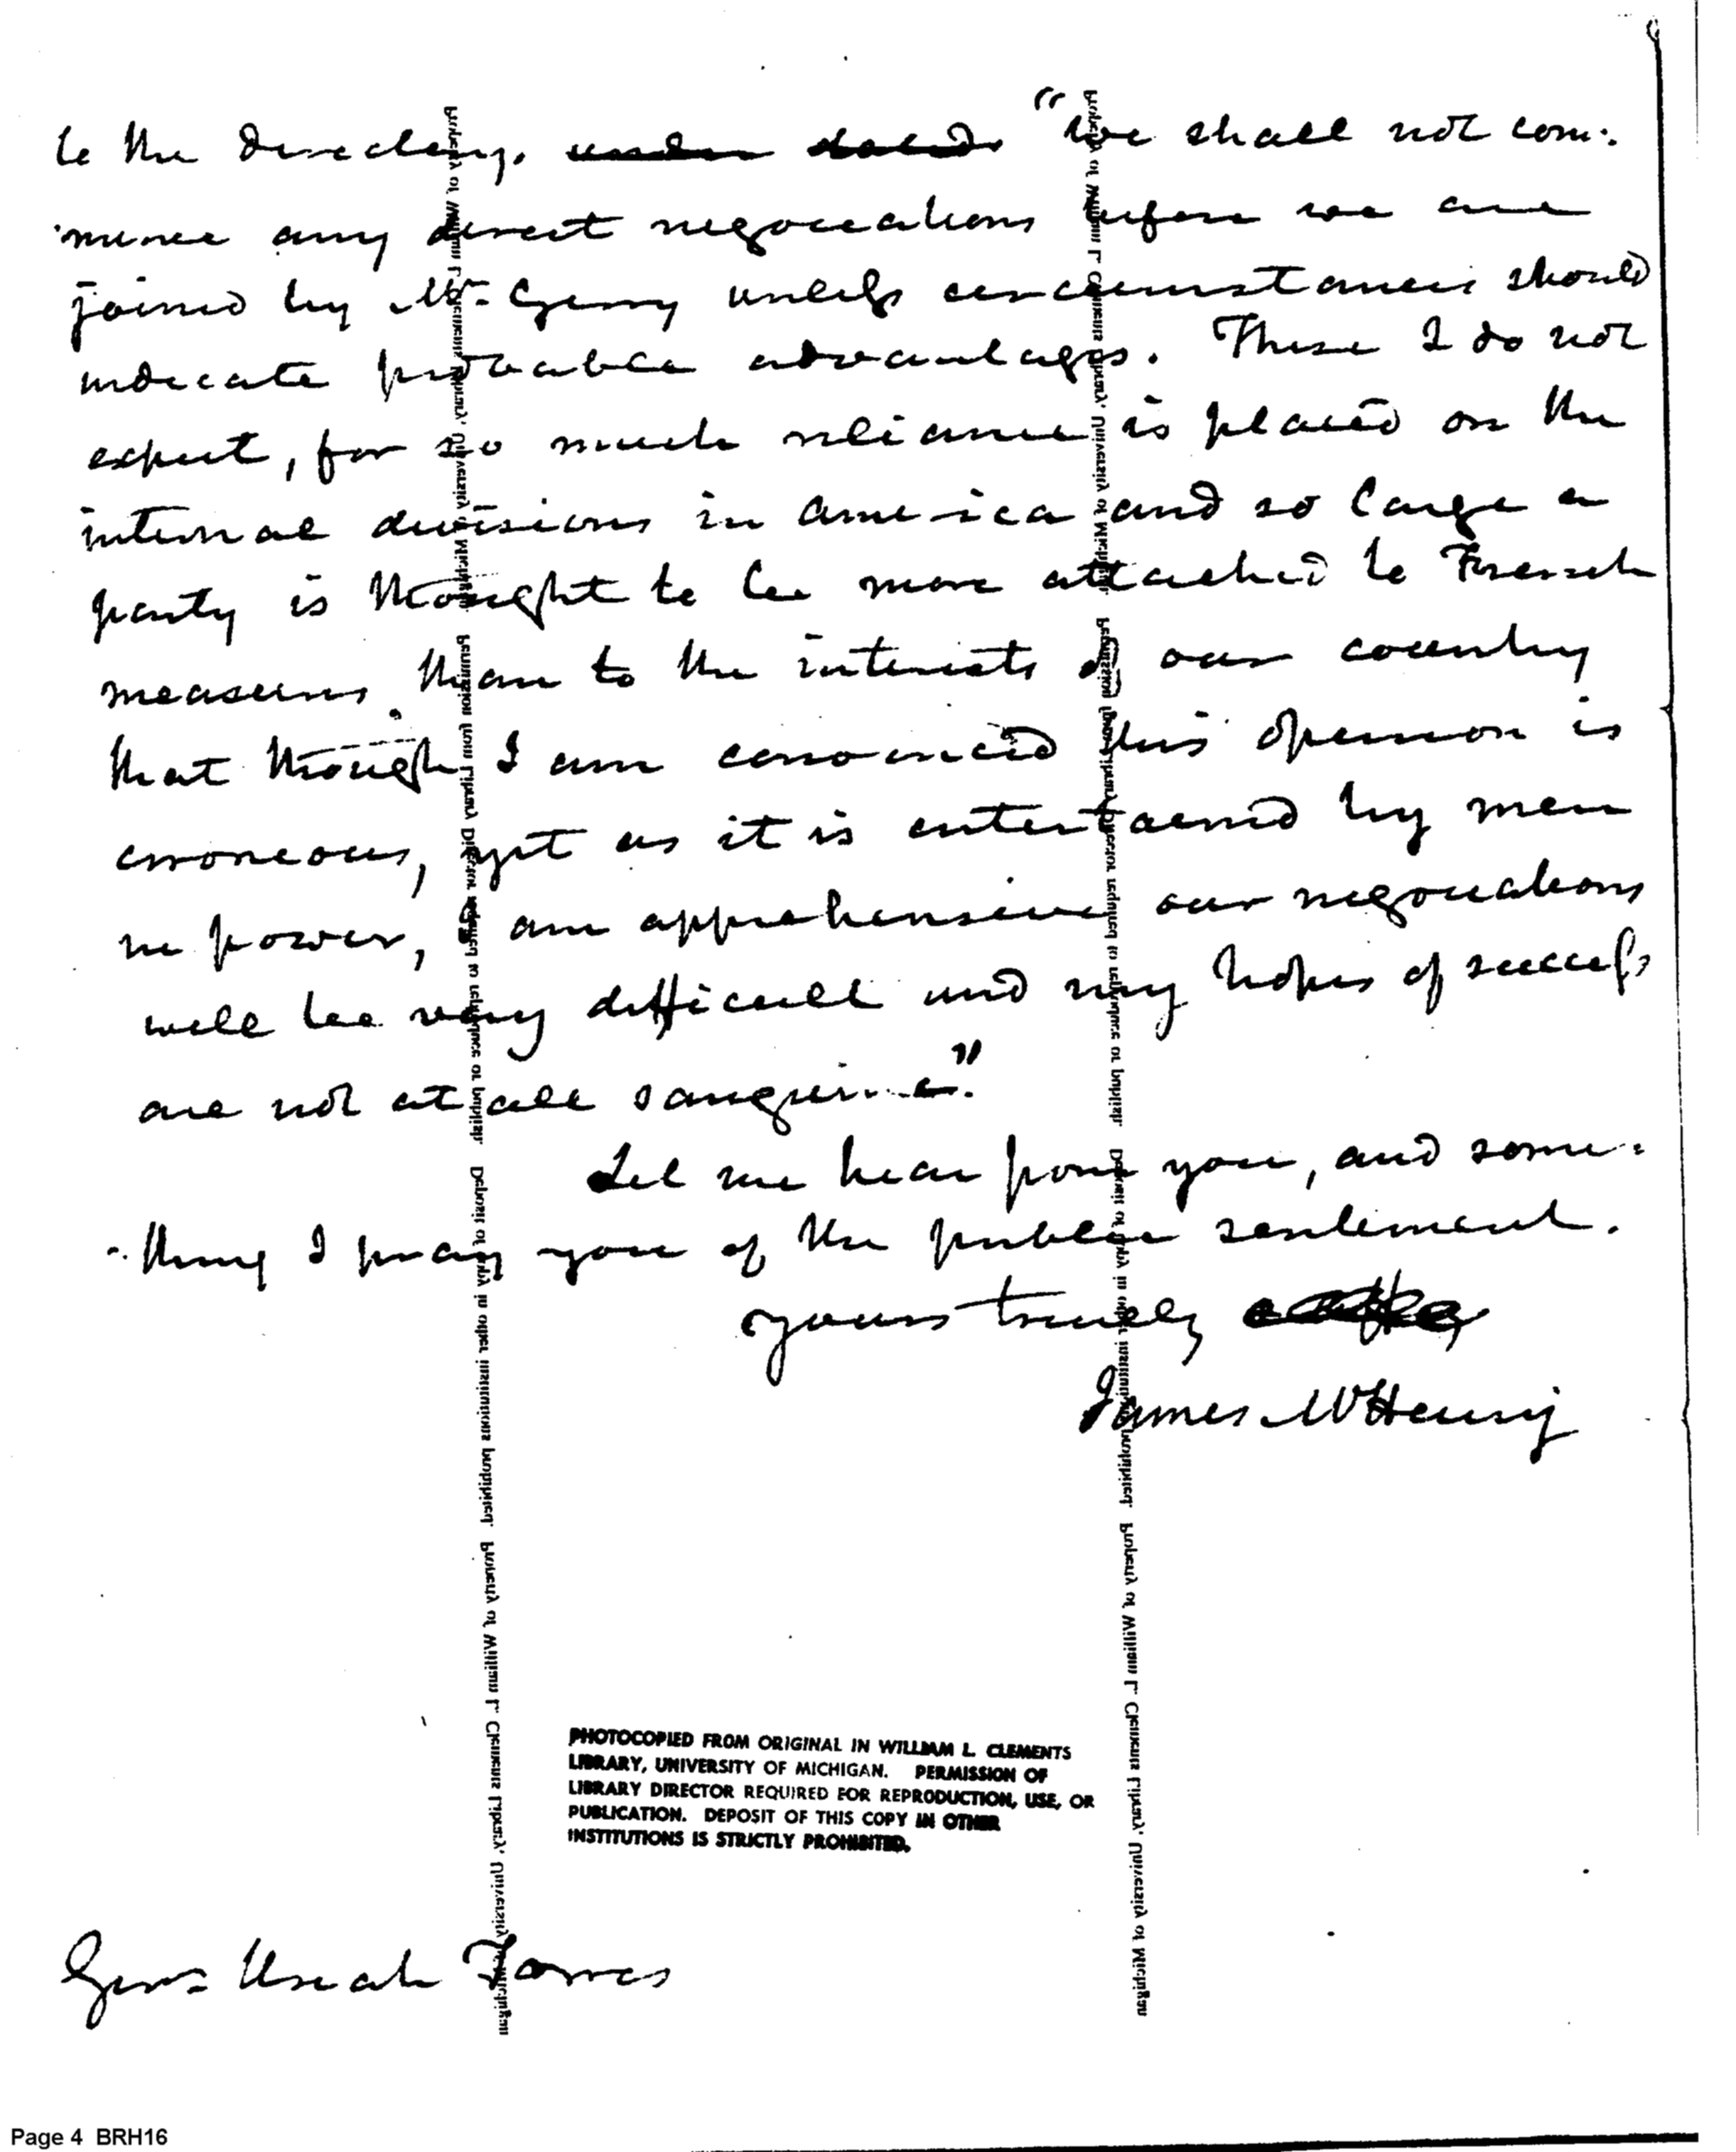 to the directory. under dated "we shall not com:
:mence any direct negociations before we are
joined by Mr. Gerry unless circumstances should
indicate probable advantages. These I do not
expect, for so much reliance is placed on the
internal divisions in America and so large a
party is thought to be more attached to French
measures than to the interests of our country
that though I am convinced this opinion is
erroneous, yet as it is entertained by men
in power, I am apprehensive our negociations
will be very difficult and my hopes of success
are not at all sanguine."
Let me hear from you, and some:
:thing I pray you of the public sentiment.
yours truely
James McHenry
PHOTOCOPIED FROM ORIGINAL IN WILLIAM L. CLEMENTS
LIBRARY, UNIVERSITY OF MICHIGAN. PERMISSION OF
LIBRARY DIRECTOR REQUIRED FOR REPRODUCTION, USE, OR
PUBLICATION. DEPOSIT OF THIS COPY IN OTHER
INSTITUTIONS IS STRICTLY PROHIBITED.
Genl. Uriah Forres
Page 4 BRH16